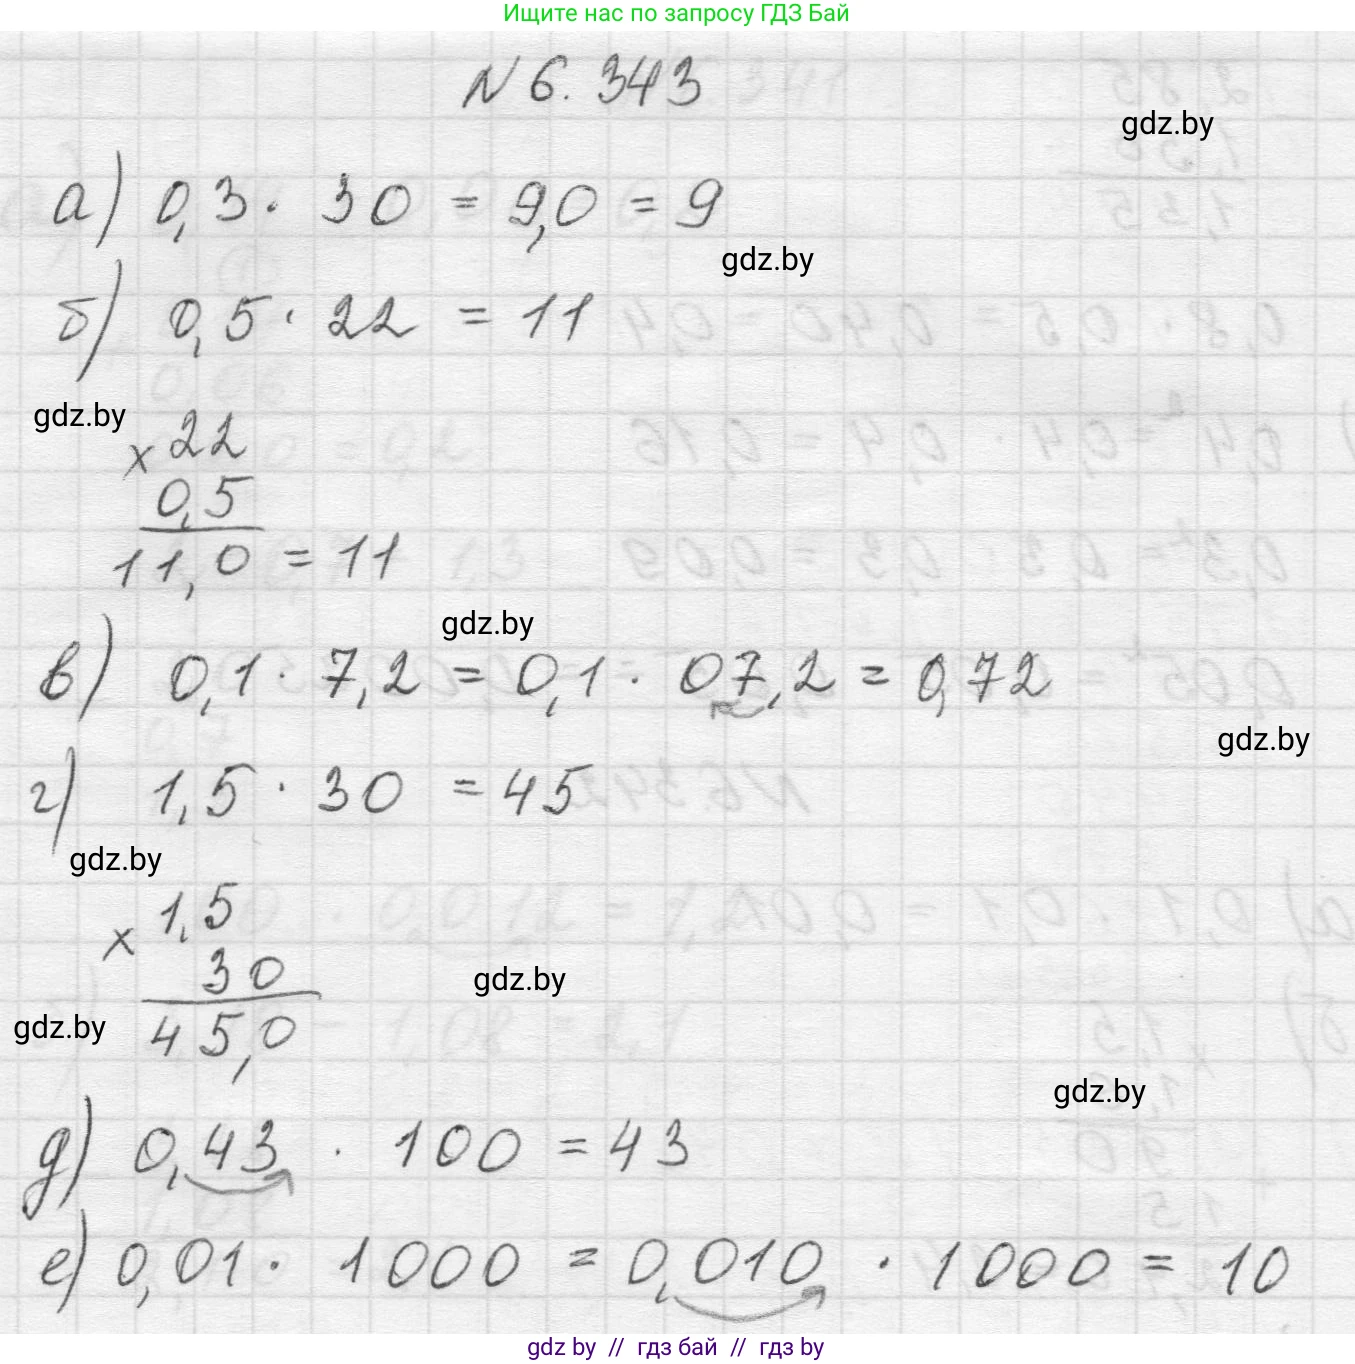 Ищите нас по запросу ГДЗ Бай
N 6.343
gdz.by
а) 0,3 · 30 = 9,0 = 9
gdz.by
б) 0,5 · 22 = 11
gdz.by
× 22
0,5
11,0 = 11
gdz.by
в) 0,1 · 7,2 = 0,1 · 07,2 = 0,72
gdz.by
г) 1,5 · 30 = 45
gdz.by
× 1,5
30
gdz.by
45,0
gdz.by
gdz.by
д) 0,43 · 100 = 43
е) 0,01 · 1000 = 0,010 · 1000 = 10
gdz.by // гдз бай // гдз by